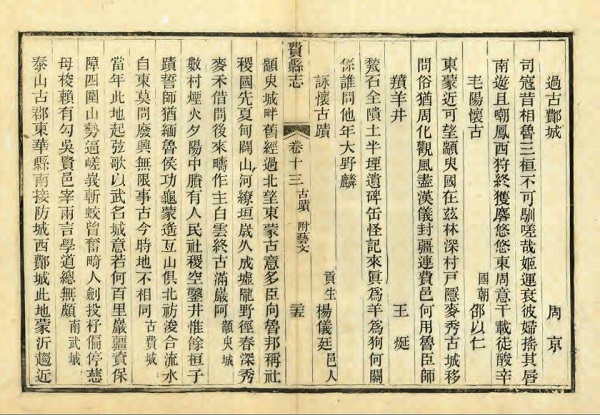 過古鄪城 周京
司寇昔相魯三桓不可馴嗟哉姬運衰彼婦擣其唇
南遊且嘲鳳西狩終獲麐悠悠東周意千載徒酸辛
毛陽懷古 國朝邵以仁
東蒙近可望顓臾國在玆林深村戶隱麥秀古城移
問俗猶周化觀風盡漢儀封疆連費邑何用魯臣師
羵羊井 王綎
甃石全隤土半堙遺碑缶怪記來眞為羊為狗何關
係誰問他年大野麟
詠懷古蹟 貢生楊儀廷邑人
費縣志 卷十三 古蹟 附藝文
顓臾城畔舊經過北望東蒙古意多臣向魯邦稱社
稷國先夏甸闢山河繚垣歲久成墟隴野徑春深秀
麥禾借問後來疇作主白雲終古滿巖阿 顓臾城
數村煙火夕陽中賸有人民社稷空鑿井惟餘桓子
蹟誓師猶緬魯侯功龜蒙遙互山俱北祊浚合流水
自東莫問廢興無限事古今時地不相同 古費城
當年此地起弦歌以武名城意若何百里巖疆資保
障四圍山勢逼嵯峩斬蛟曾奮畸人劍投杼偏停慈
母梭賴有勾吳賢邑宰雨言學道總無頗 南武城
泰山古郡東華縣南接防城西鄪城此地蒙沂趨近